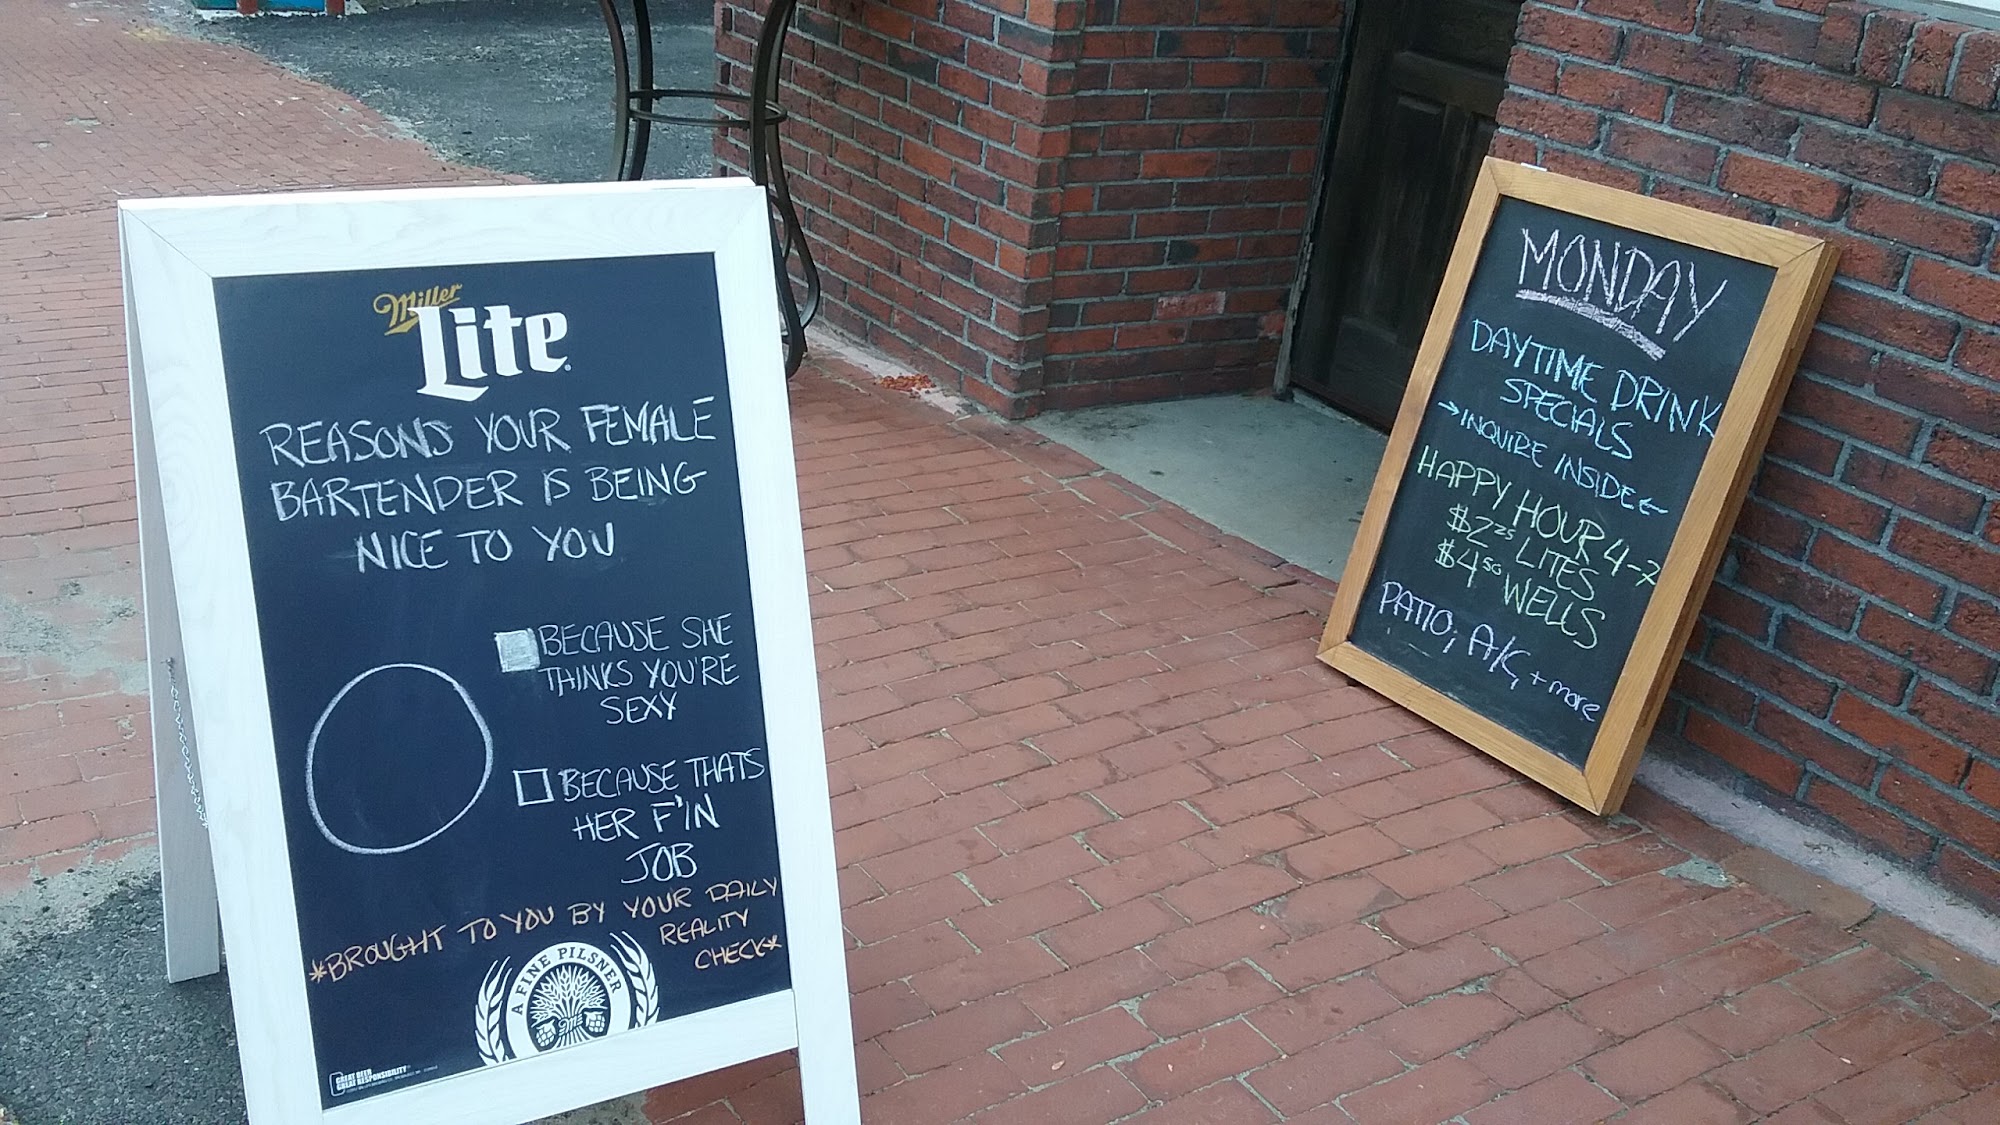 Miller
Lite
REASONS YOUR FEMALE
BARTENDER IS BEING
NICE TO YOU
BECAUSE SHE
THINKS YOU'RE
SEXY
BECAUSE THATS
HER F'IN
JOB
*BROUGHT TO YOU BY YOUR DAILY
REALITY
CHECK*
A FINE PILSNER
GREAT BEER
GREAT RESPONSIBILITY
MONDAY
DAYTIME DRINK
SPECIALS
→INQUIRE INSIDE←
HAPPY HOUR 4-7
$2.25 LITES
$4.50 WELLS
PATIO, A/C, + more